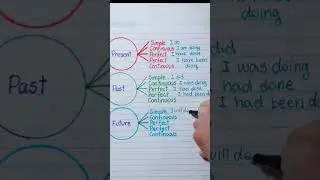 Present
Simple I do
Continuous I am doing
Perfect I have done
Perfect I have been
Continuous doing
Past
Simple I did
Continuous I was doing
Perfect I had done
Perfect I had been
Continuous
Future
Simple I will do
Continuous
Perfect
Perfect
Continuous
Past
doing
did
I was doing
had done
I had been
will do